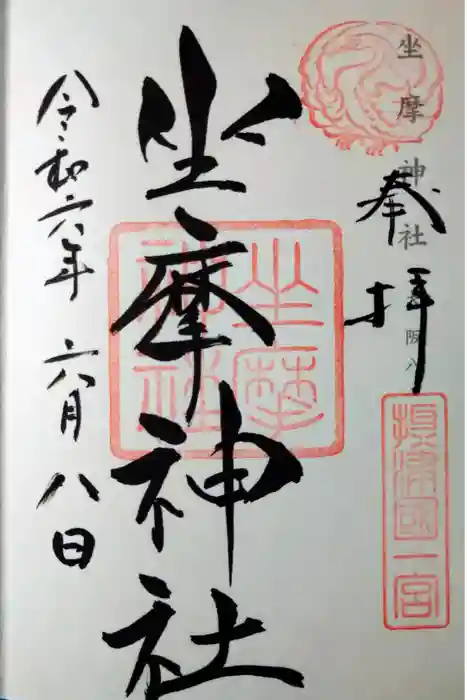 坐摩神社 大阪八
奉拝
摂津國一宮
坐摩神社
坐摩神社
令和六年 六月八日